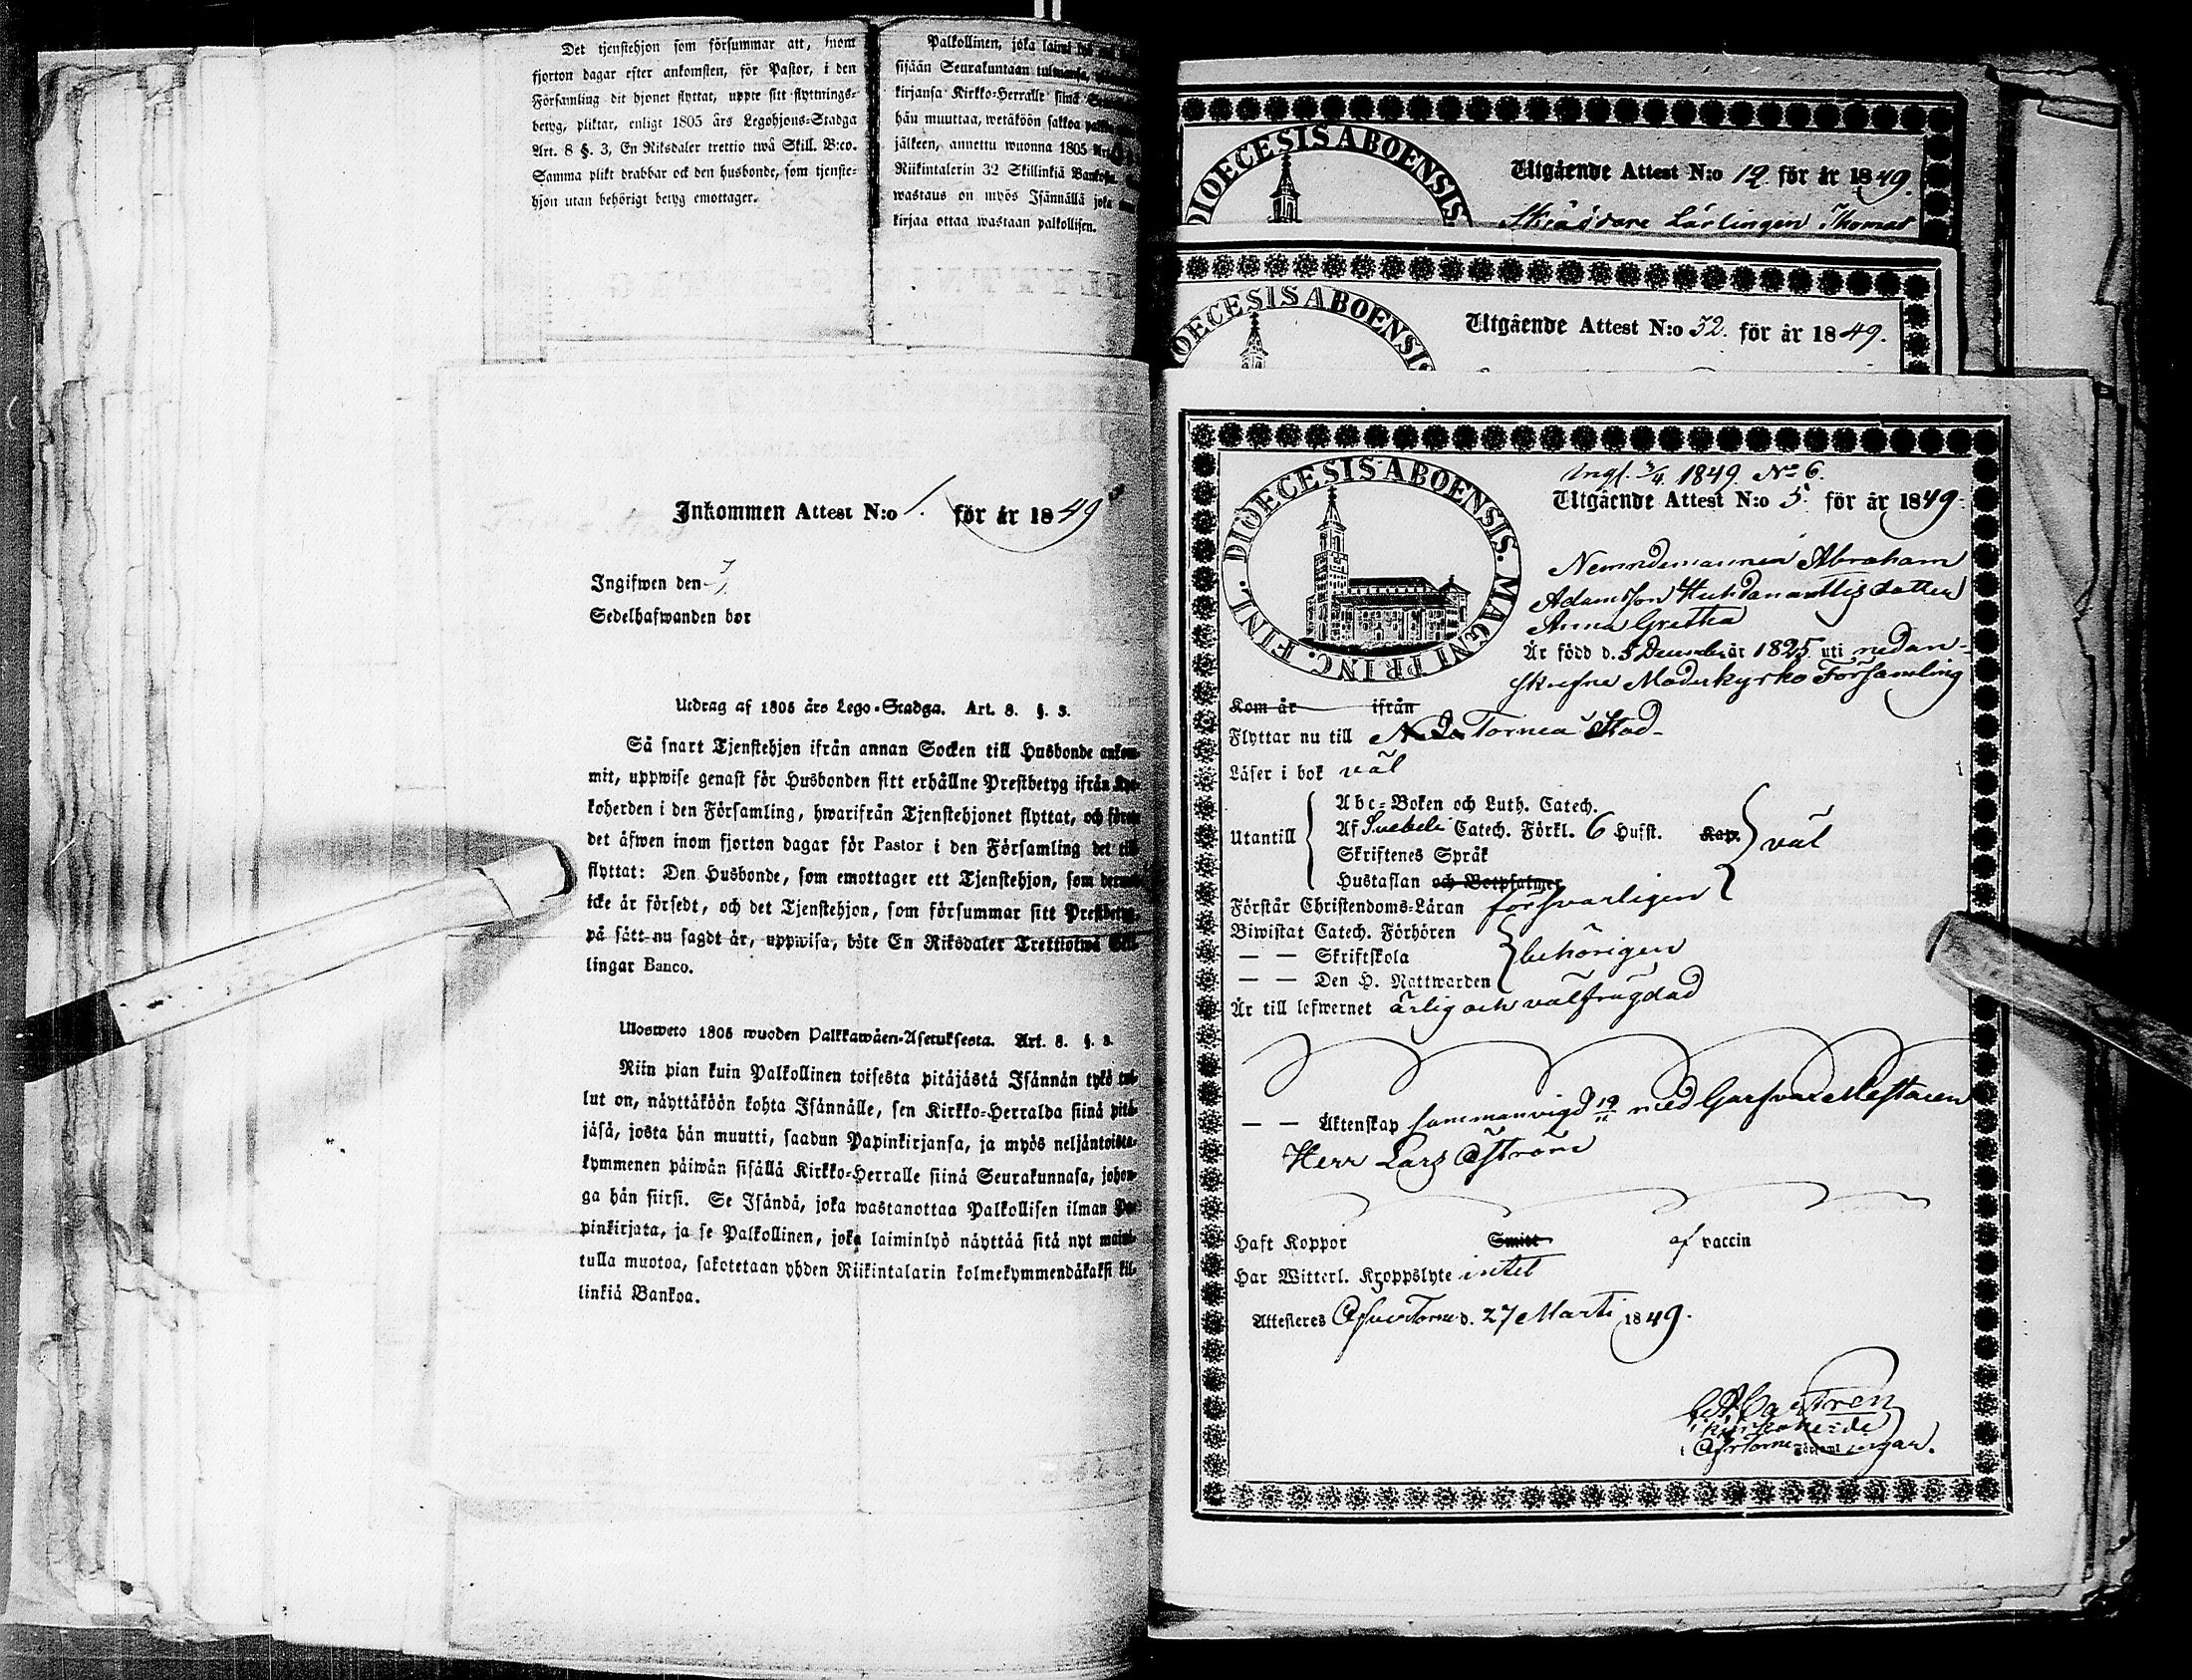 Det tjenstehjon som försummar att, inom
fjorton dagar efter ankomsten, för Pastor, i den
Församling dit hjonet flyttat, uppte sitt flyttnings-
betyg, pliktar, enligt 1805 års Legohjons-Stadga
Art. 8 §. 3, En Riksdaler trettio twå Skill. B:co.
Samma plikt drabbar ock den husbonde, som tjenste-
hjon utan behörigt betyg emottager.
Palkollinen, joka
sisään Seurakuntaan
kirjansa Kirkko-Herralle siinä
hän muuttaa, wetäköön sakkoa
jälkeen, annettu wuonna 1805
Riikintalerin 32 Skillinkiä
wastaus on myös Isännällä joka
kirjaa ottaa wastaan palkollisen.
Inkommen Attest N:o 1. för år 1849
Ingifwen den
Sedelhafwanden bor
Utdrag af 1805 års Lego-Stadga. Art. 8. §. 3.
Så snart Tjenstehjon ifrån annan Socken till Husbonde ankom-
mit, uppwise genast för Husbonden sitt erhållne Prestbetyg ifrån Kyr-
koherden i den Församling, hwarifrån Tjenstehjonet flyttat, och förete
det äfwen inom fjorton dagar för Pastor i den Församling det till
flyttat: Den Husbonde, som emottager ett Tjenstehjon, som dermed
icke är försedt, och det Tjenstehjon, som försummar sitt Prestbetyg,
på sätt nu sagdt är, uppwisa, böte En Riksdaler Trettiotwå Skil-
lingar Banco.
Ulosweto 1805 wuoden Palkkawäen-Asetuksesta. Art. 8. §. 3.
Niin pian kuin Palkollinen toisesta pitäjästä Isännän tykö tul-
lut on, näyttäköön kohta Isännälle, sen Kirkko-Herralda siinä pitä-
jäsä, josta hän muutti, saadun Papinkirjansa, ja myös neljäntoista-
kymmenen päiwän sisällä Kirkko-Herralle siinä Seurakunnasa, johon-
ga hän siirsi. Se Isändä, joka wastanottaa Palkollisen ilman Pa-
pinkirjata, ja se Palkollinen, joka laiminlyö näyttää sitä nyt maini-
tulla muotoa, sakotetaan yhden Riikintalarin kolmekymmendäkaksi kil-
linkiä Bankoa.
DIOECESIS ABOENSIS.
Utgående Attest N:o 12 för år 1849.
Lärlingen Thomas
DIOECESIS ABOENSIS
Utgående Attest N:o 52. för år 1849.
DIOECESIS ABOENSIS. MAGNI PRINC. FINL.
Ingf. 3/4 1849. No 6.
Utgående Attest N:o 5. för år 1849.
Nemndemannen Abraham
Adamsson dotter
Anna Gretha
Är född d. 5 December år 1825 uti nedan-
skrefne Moderkyrko Församling
Kom år ifrån
Flyttar nu till Torneå Stad.
Läser i bok väl
Utantill
Abc-Boken och Luth. Catech.
Af Svebelii Catech. Förkl. 6 Hufst. Kap. väl
Skriftenes Språk
Hustaflan och Botpsalmer
Förstår Christendoms-Läran försvarligen
Biwistat Catech. Förhören
— — Skriftskola behörigen
— — Den H. Nattwarden
Är till lefwernet ärlig och välfrägdad
— — Äktenskap sammanvigd med Garfvare Mestaren
Herr Lars Åström
Haft Koppor Smitt af vaccin
Har Witterl. Kroppslyte intet
Attesteres Öfver Torne d. 27 Marti 1849.
Castren
Kyrkoherde
i Öfver Torne Församlingar.